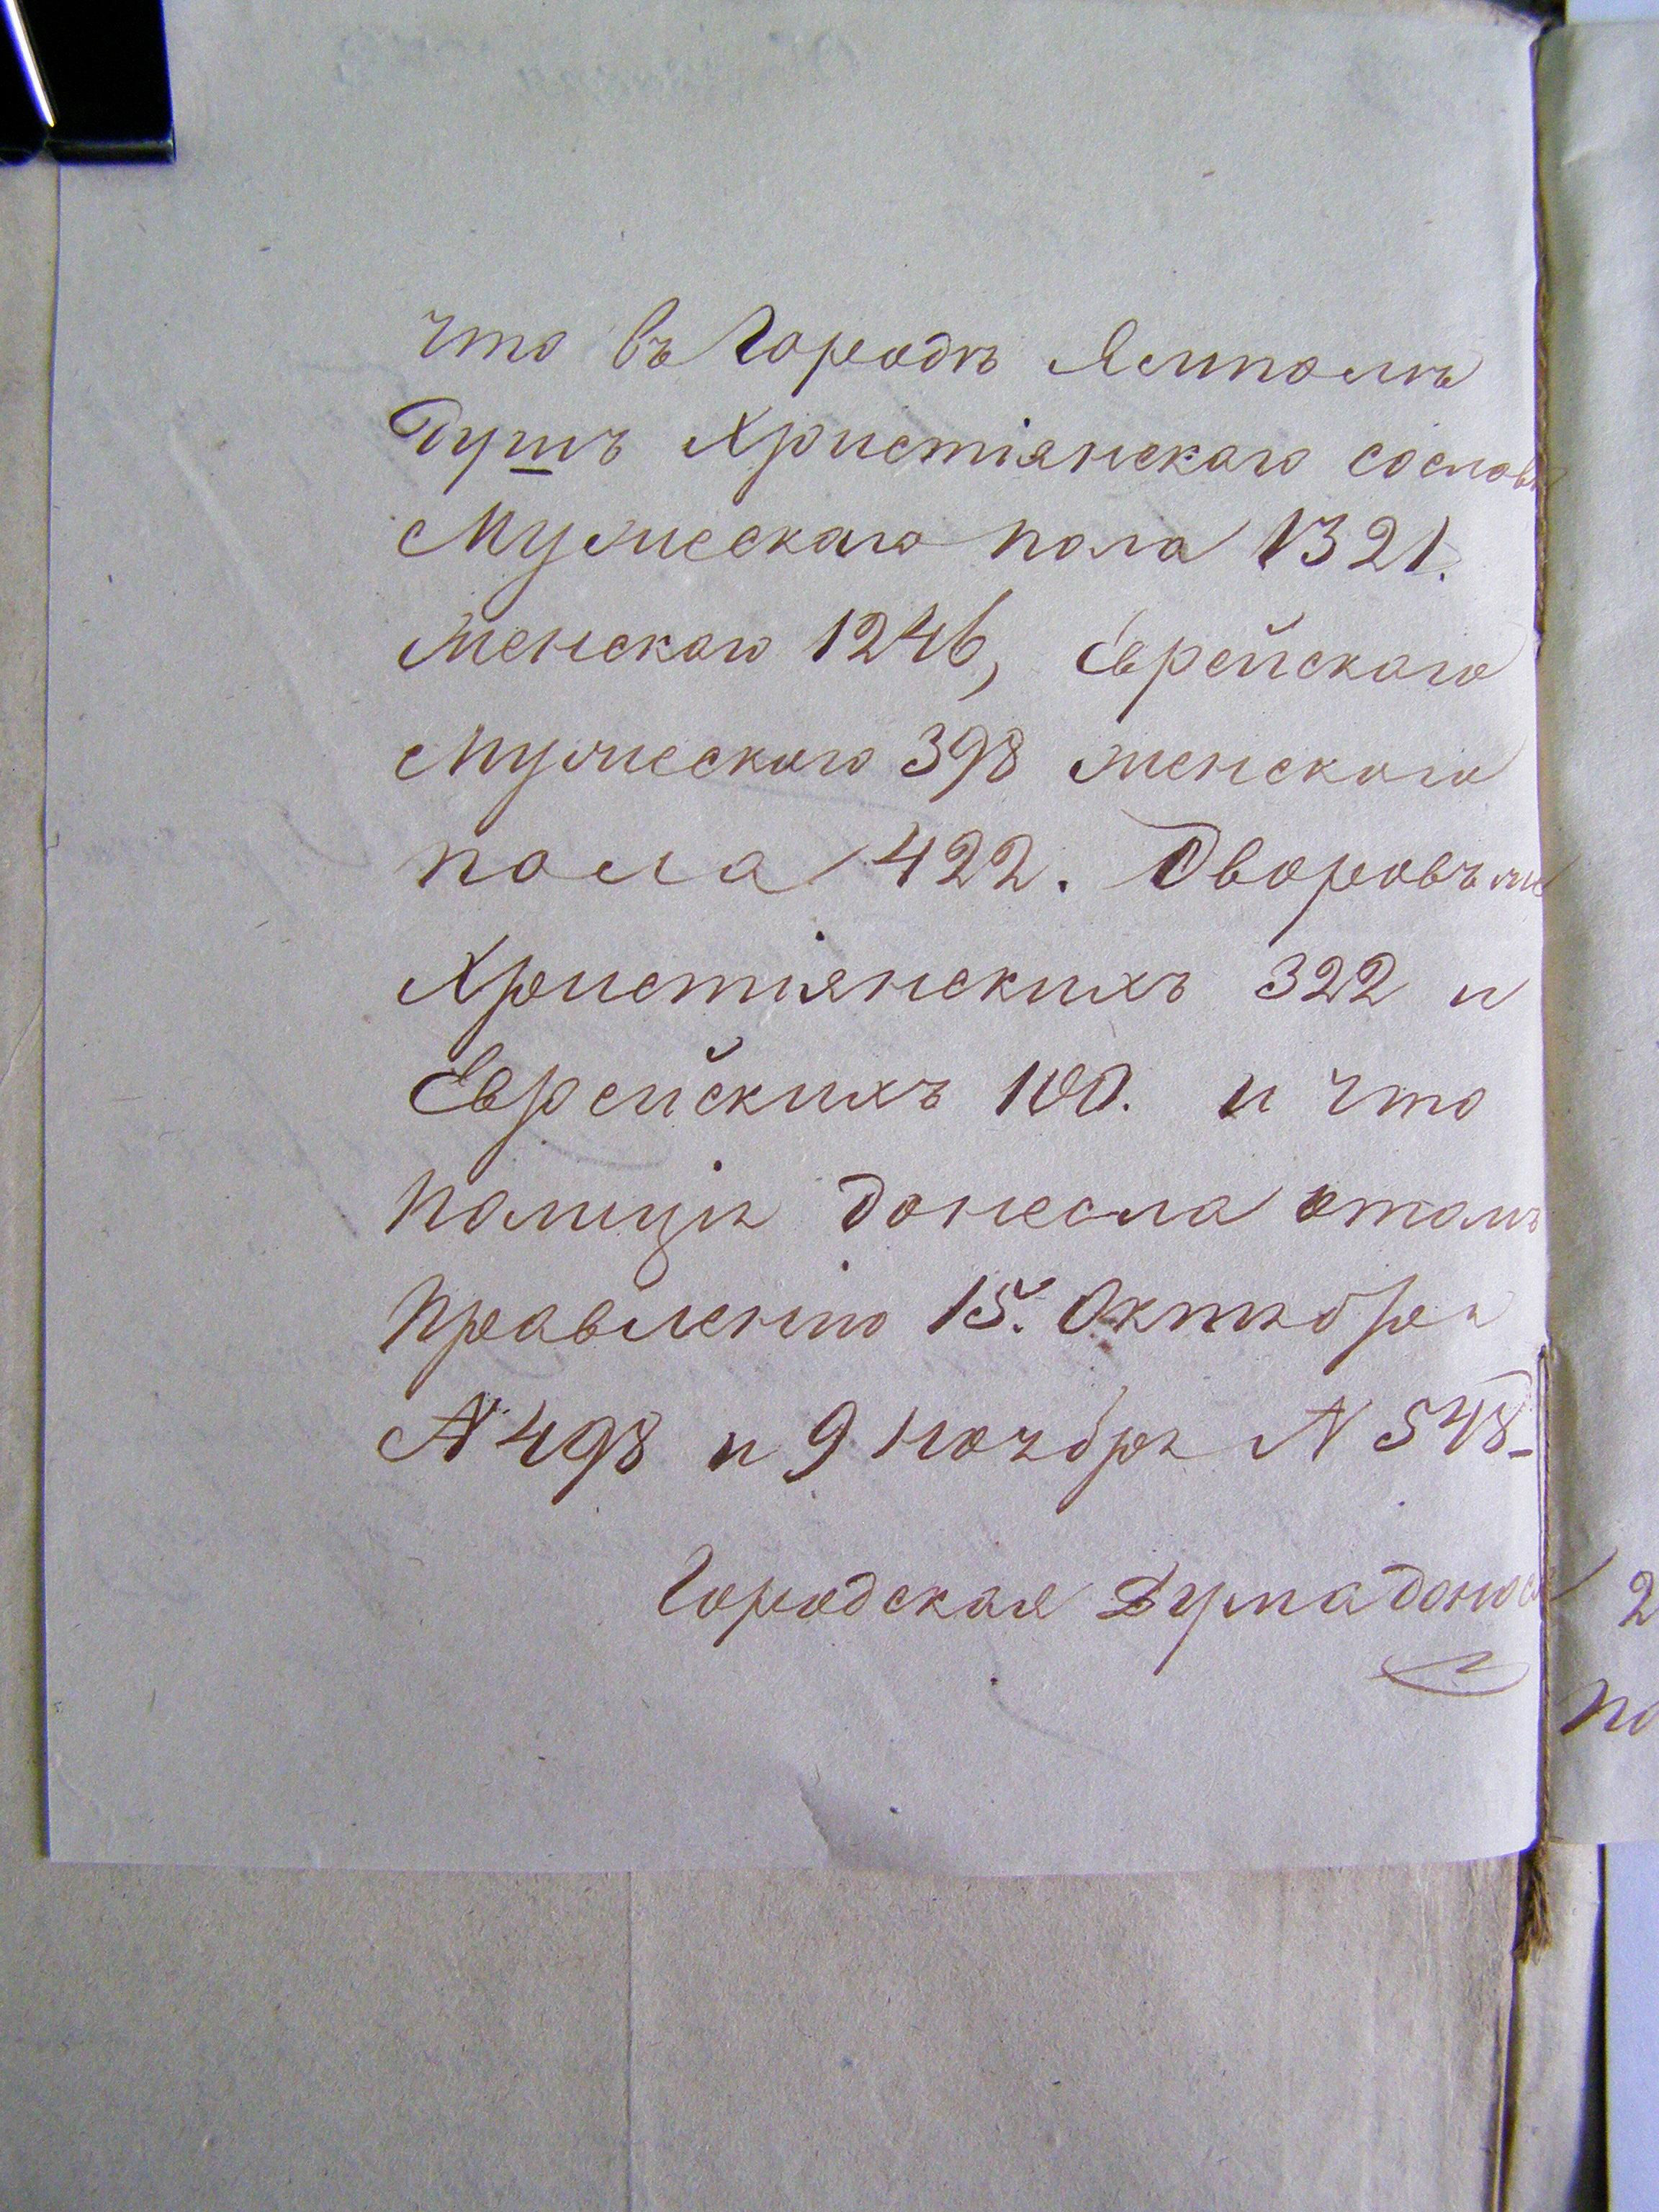 что въ Городѣ Ямполѣ
Душъ Христіянскаго сослов
Мужескаго пола 1321.
женскаго 1246, Еврейскаго
Мужескаго 398 женскаго
пола 422. Дворовъ же
Христіянскихъ 322 и
Еврейскихъ 100. и что
полиція донесла отомъ
Правленію 15. Октября
N 498 и 9 ноября N 548_
Городская Дума доноси
2
по